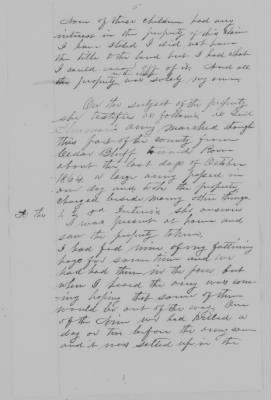 None of these children had any
interest in the property of this claim
I have stated I did not have
the title to the land but I had what
I could make off of it. And all
this property was solely my own.
On the subject of the property
she testifies as follows, to wit
army marched through
this part of the county from
Cedar Bluff toward Rome
about the last days of October
1864 a large army passed in
one day and took the property
charged beside many other things
To the
I was present at home and
saw the property taken,
I had fed nine of my fattening
hogs for some time and we
had had them in the pen but
when I heard the army was com
ing hoping that some of them
would be out of the way. One
of the nine we had killed a
day or two before the army came
and it was salted up in the